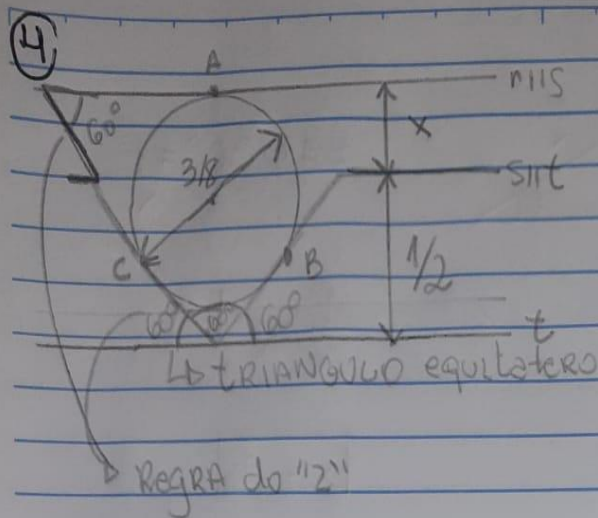 4
A
r//s
60°
x
3/8
s//t
C
B
1/2
60° 60° 60°
t
↳ tRIANGULO equilatero
Regra do "Z"